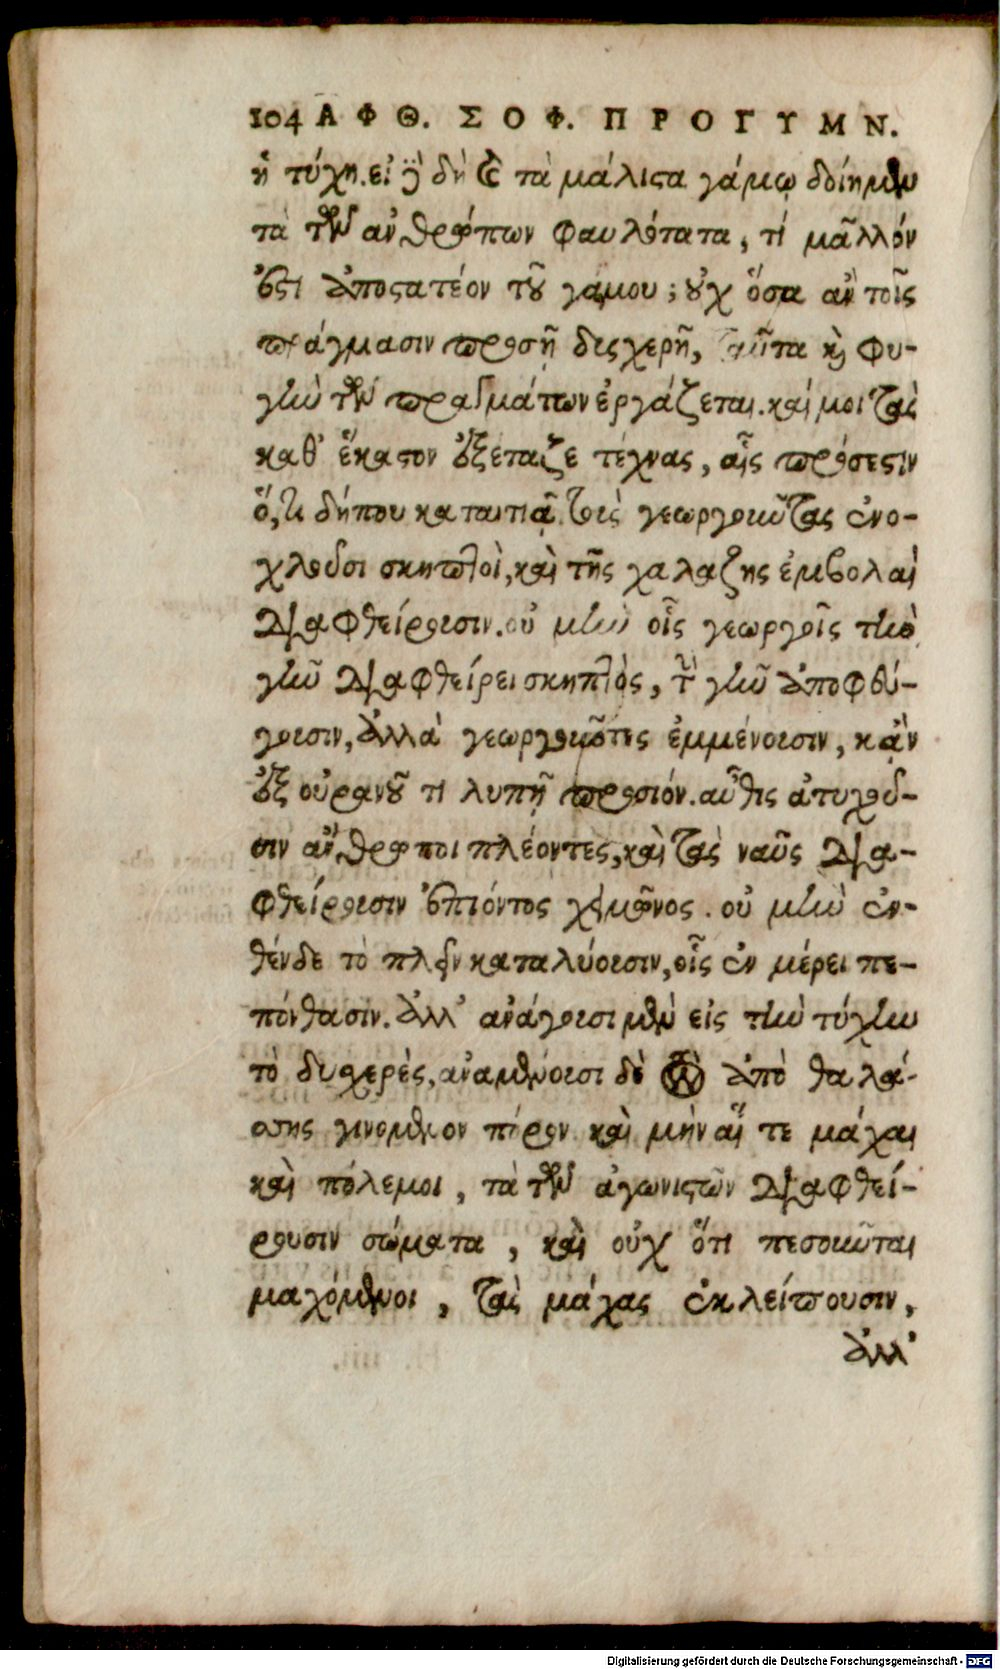 104 ΑΦΘ. ΣΟΦ. ΠΡΟΓΥΜΝ.
ἡ τύχη. εἰ δὲ δὴ καὶ τὰ μάλιστα γάμῳ δοίημεν
τὰ τῶν ἀνθρώπων φαυλότατα, τί μᾶλλόν
ἐστι ἀποστατέον τοῦ γάμου; οὐχ ὅσα ἂν τοῖς
πράγμασιν προσῇ δυσχερῆ, ταῦτα καὶ φυ-
γὴν τῶν πραγμάτων ἐργάζεται. καί μοι τὰς
καθ' ἕκαστον ἐξέταζε τέχνας, αἷς πρόσεστιν
ὅ,τι δήπου καταιτιᾷ. τοὺς γεωργοῦντας ἐνο-
χλοῦσι σκηπτοὶ, καὶ τῆς χαλάζης ἐμβολαὶ
διαφθείρουσιν. οὐ μὴν οἷς γεωργοῖς τὴν
γῆν διαφθείρει σκηπτὸς, τὴν γῆν ἀποφεύ-
γουσιν, ἀλλὰ γεωργοῦντες ἐμμένουσιν, κἂν
ἐξ οὐρανοῦ τι λυπῇ προσιόν. αὖθις ἀτυχοῦ-
σιν ἄνθρωποι πλέοντες, καὶ τὰς ναῦς δια-
φθείρουσιν ἐπιόντος χειμῶνος. οὐ μὴν ἐν-
θένδε τὸ πλεῖν καταλύουσιν, οἷς ἐν μέρει πε-
πόνθασιν. ἀλλ' ἀνάγουσι μὲν εἰς τὴν τύχην
τὸ δυχερὲς, ἀναμένουσι δὲ τὸν ἀπὸ θαλά-
σσης γινόμενον πόρον. καὶ μὴν αἵ τε μάχαι
καὶ πόλεμοι, τὰ τῶν ἀγωνιστῶν διαφθεί-
ρουσιν σώματα, καὶ οὐχ ὅτι πεσοῦνται
μαχόμενοι, τὰς μάχας ἐκλείπουσιν,
ἀλλ'
Digitalisierung gefördert durch die Deutsche Forschungsgemeinschaft - DFG